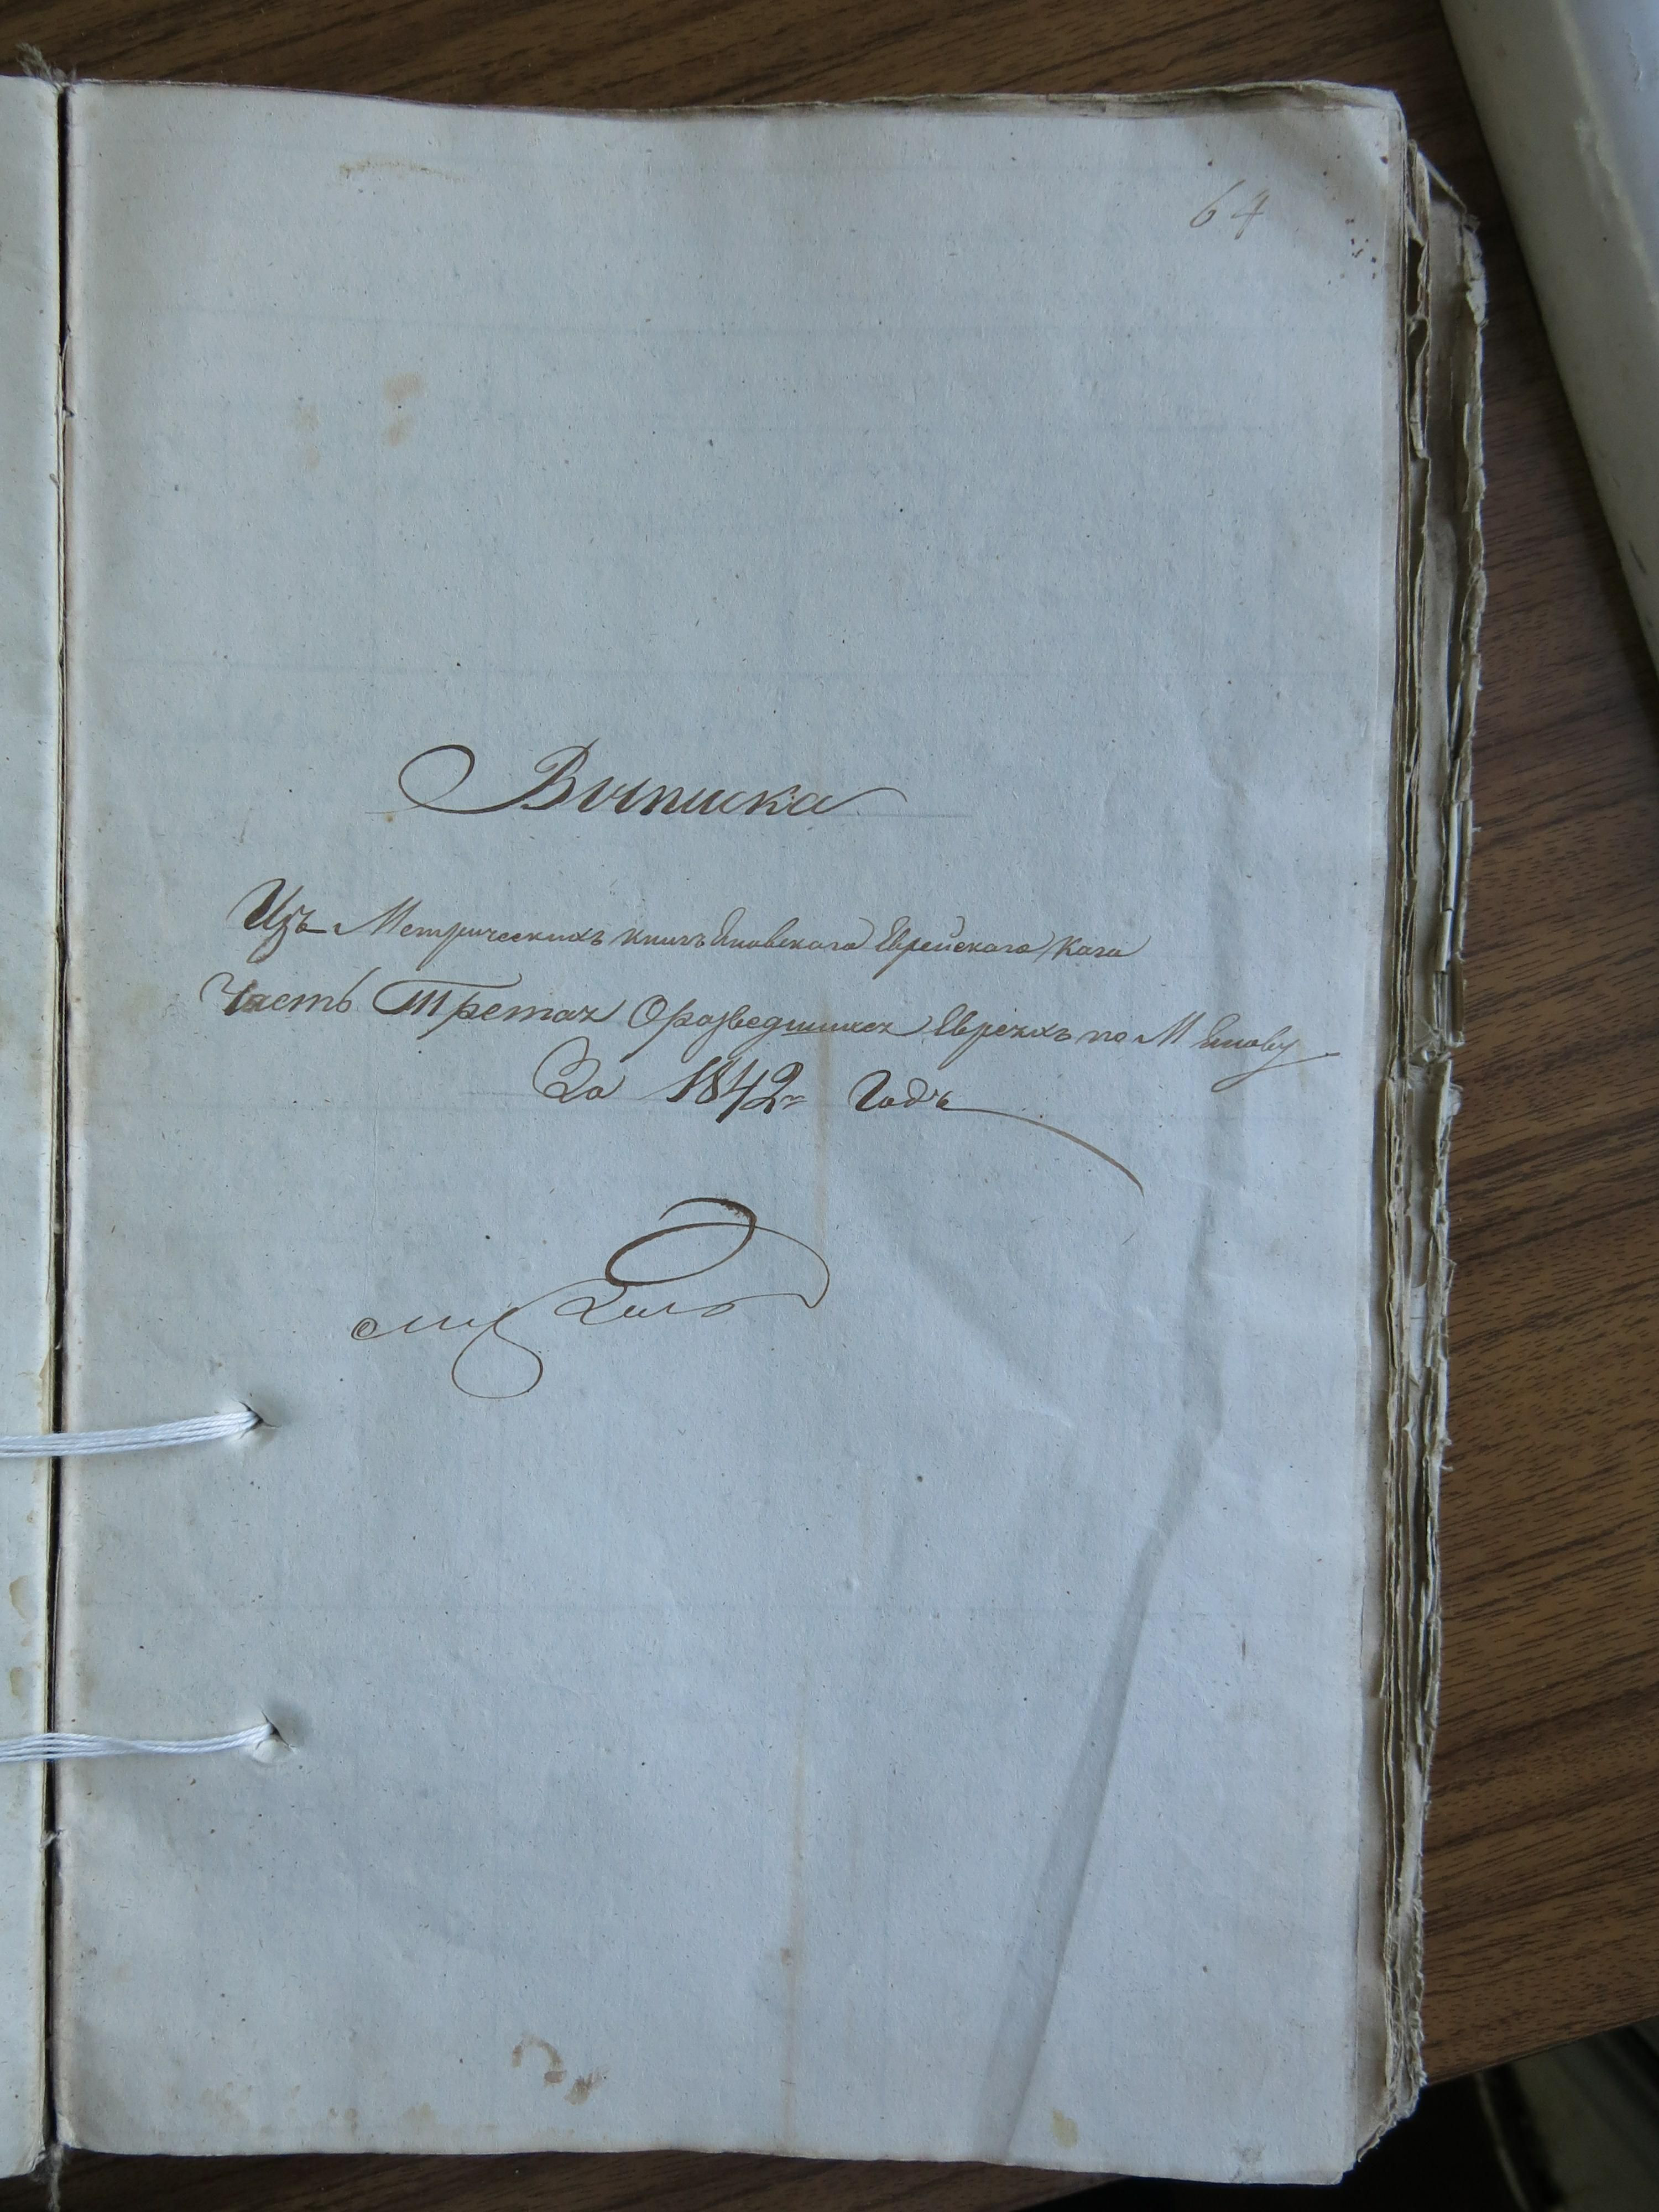 64
Выписка
Изъ Метрическихъ книгъ Яновского Еврейского Кага
Часть Третая О разведшихся Евреяхъ по М Янову
За 1842й Годъ